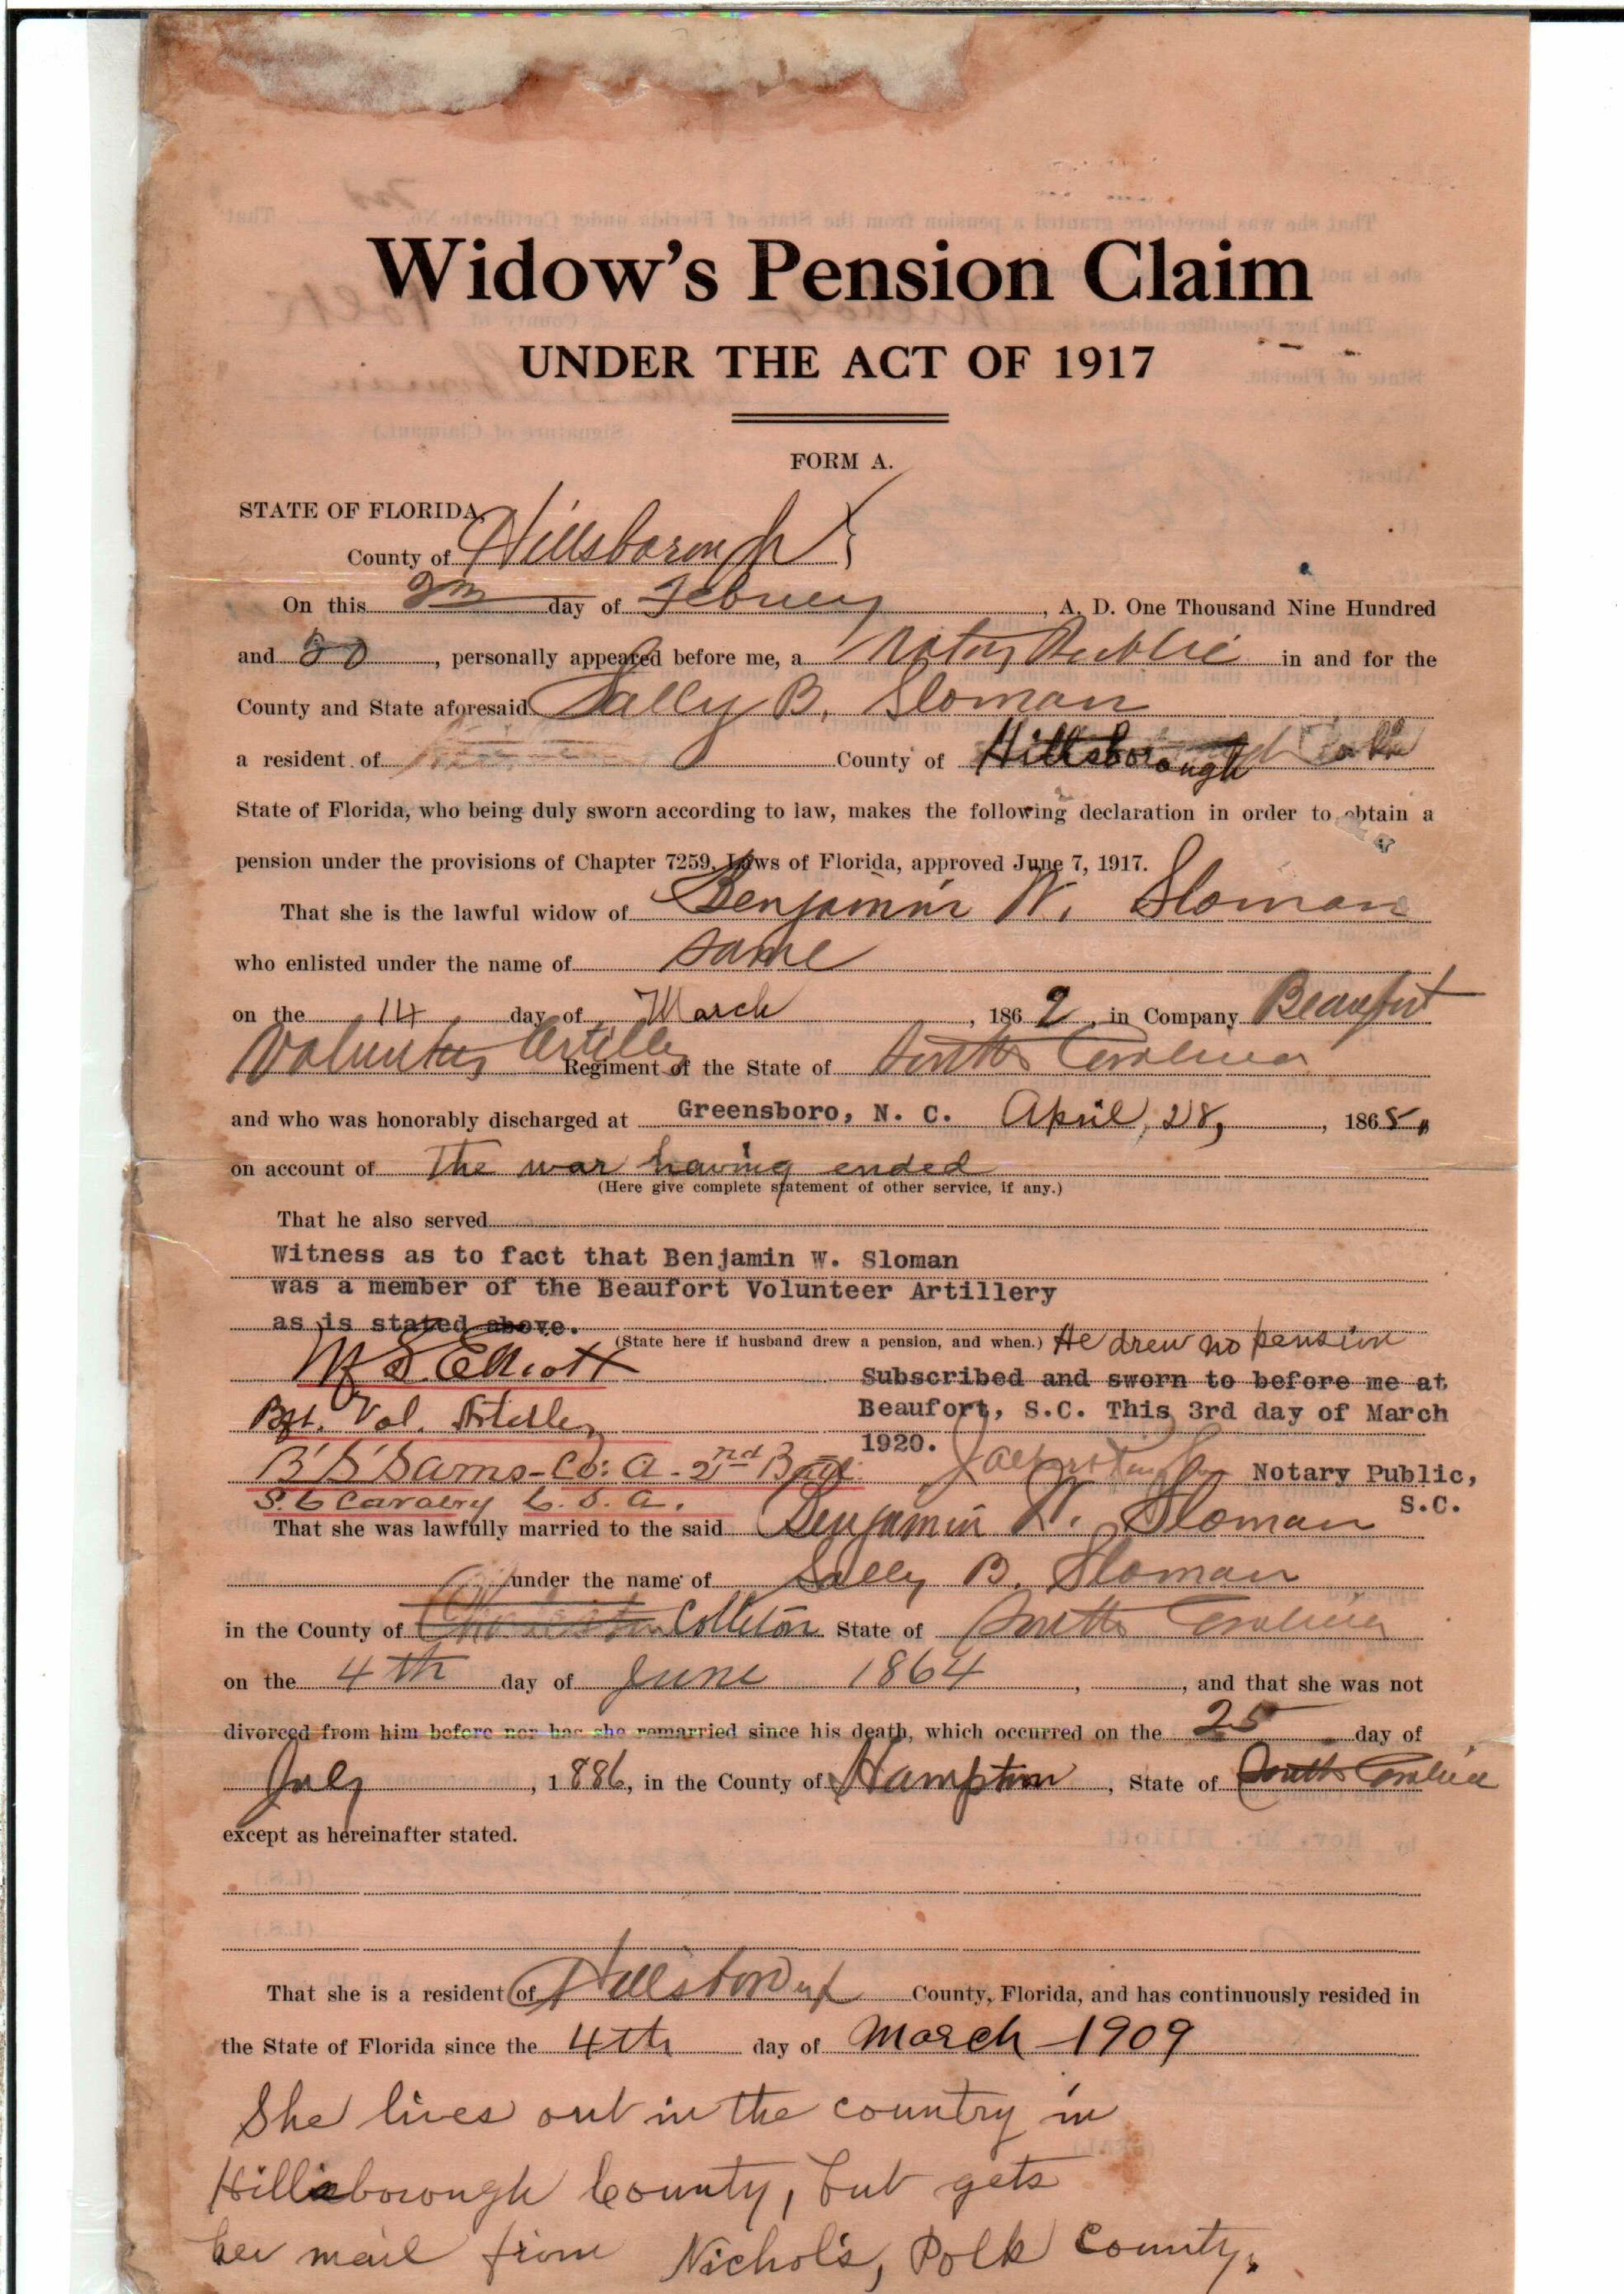 Widow's Pension Claim
UNDER THE ACT OF 1917
FORM A.
STATE OF FLORIDA,
County of Hillsborough }
On this day of , A. D. One Thousand Nine Hundred
and 20, personally appeared before me, a Notary Public in and for the
County and State aforesaid Sally B. Sloman
a resident of County of Hillsborough
State of Florida, who being duly sworn according to law, makes the following declaration in order to obtain a
pension under the provisions of Chapter 7259, Laws of Florida, approved June 7, 1917.
That she is the lawful widow of Benjamin W. Sloman
who enlisted under the name of same
on the 14 day of March, 1862, in Company Beaufort
Volunteer Artillery Regiment of the State of South Carolina
and who was honorably discharged at Greensboro, N. C. April, 28, , 1865,
on account of The war having ended
(Here give complete statement of other service, if any.)
That he also served
Witness as to fact that Benjamin W. Sloman
was a member of the Beaufort Volunteer Artillery
as is stated above.
(State here if husband drew a pension, and when.) He drew no pension
Elliott
Subscribed and sworn to before me at
Bft. Vol. Artillery
Beaufort, S.C. This 3rd day of March
1920.
B S Sams - Co: A - 2nd Batt.
Notary Public,
S.C.
S. C Cavalry C. S. A.
That she was lawfully married to the said Benjamin W. Sloman
under the name of Sally B. Sloman
in the County of Colleton State of South Carolina
on the 4th day of June 1864 , , and that she was not
divorced from him before nor has she remarried since his death, which occurred on the 25 day of
July, 1886, in the County of Hampton, State of South Carolina
except as hereinafter stated.
That she is a resident of Hillsborough County, Florida, and has continuously resided in
the State of Florida since the 4th day of March 1909
She lives out in the country in
Hillsborough County, but gets
her mail from Nichols, Polk County.